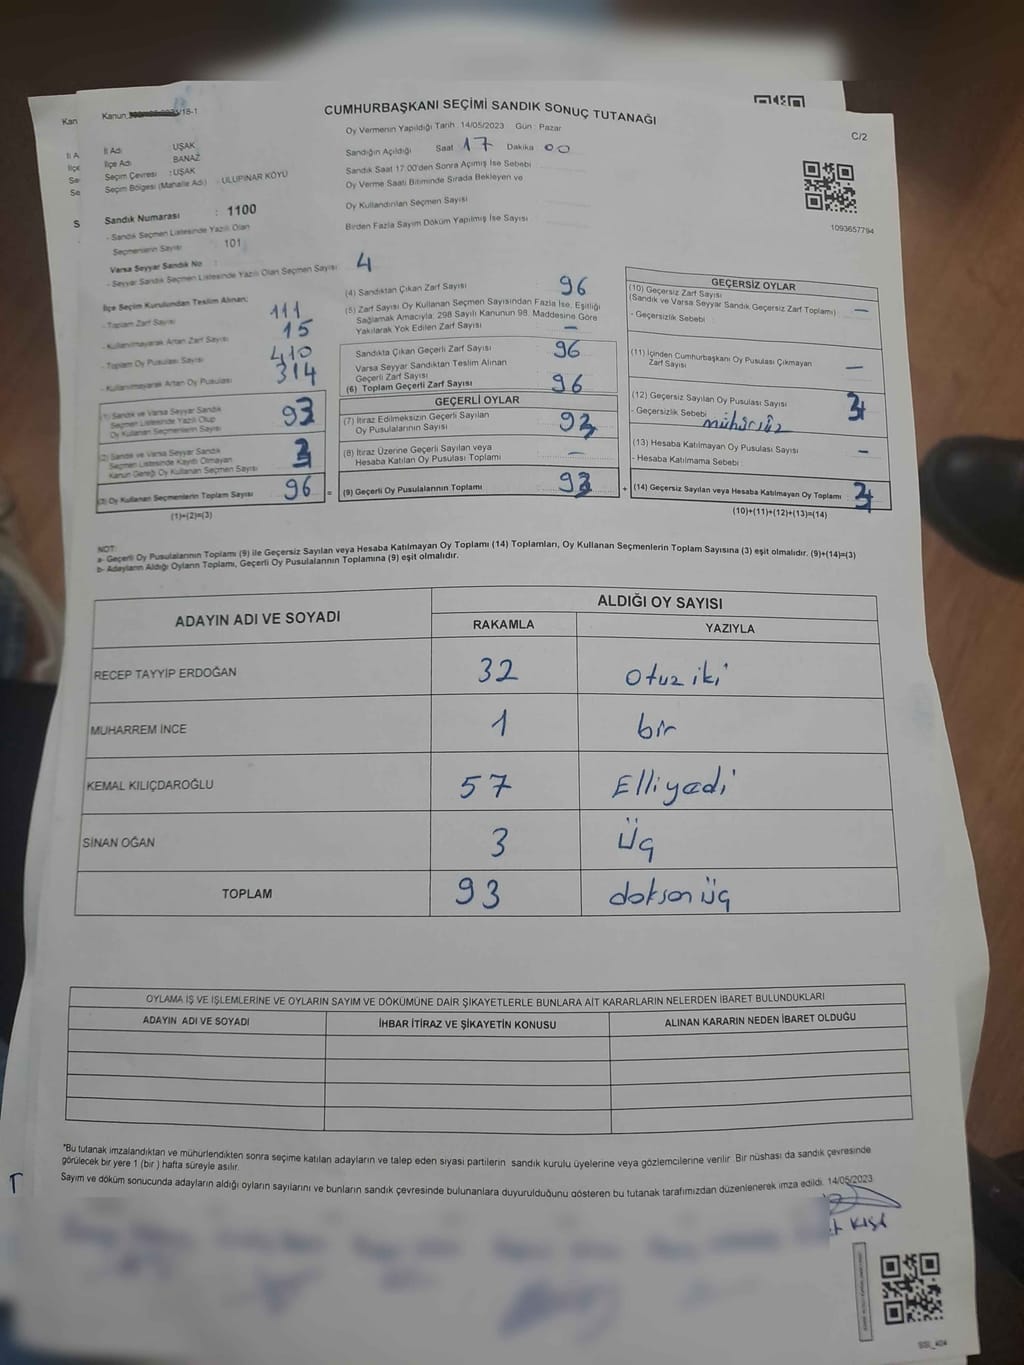 CUMHURBAŞKANI SEÇİMİ SANDIK SONUÇ TUTANAĞI
Kan
Kanun /18-1
Oy Vermenin Yapıldığı Tarih : 14/05/2023 Gün : Pazar
C/2
İl A
İlçe
Se
Se
S
İl Adı : UŞAK
İlçe Adı : BANAZ
Seçim Çevresi : UŞAK
Seçim Bölgesi (Mahalle Adı) : ULUPINAR KÖYÜ
Sandık Numarası : 1100
- Sandık Seçmen Listesinde Yazılı Olan
Seçmenlerin Sayısı 101
Varsa Seyyar Sandık No :
- Seyyar Sandık Seçmen Listesinde Yazılı Olan Seçmen Sayısı 4
Sandığın Açıldığı Saat 17 Dakika 00
Sandık Saat 17:00'den Sonra Açımış İse Sebebi
Oy Verme Saati Bitiminde Sırada Bekleyen ve
Oy Kullandırılan Seçmen Sayısı
Birden Fazla Sayım Döküm Yapılmış İse Sayısı
1093657794
İlçe Seçim Kurulundan Teslim Alınan;
- Toplam Zarf Sayısı 111
- Kullanılmayarak Artan Zarf Sayısı 15
- Toplam Oy Pusulası Sayısı 410
- Kullanılmayarak Artan Oy Pusulası 314
(1) Sandık ve Varsa Seyyar Sandık
Seçmen Listesinde Yazılı Olup
Oy Kullanan Seçmenlerin Sayısı 93
(2) Sandık ve Varsa Seyyar Sandık
Seçmen Listesinde Kayıtlı Olmayan
Kanun Gereği Oy Kullanan Seçmen Sayısı 3
(3) Oy Kullanan Seçmenlerin Toplam Sayısı 96 =
(1)+(2)=(3)
(4) Sandıktan Çıkan Zarf Sayısı 96
(5) Zarf Sayısı Oy Kullanan Seçmen Sayısından Fazla İse, Eşitliği
Sağlamak Amacıyla; 298 Sayılı Kanunun 98. Maddesine Göre
Yakılarak Yok Edilen Zarf Sayısı —
Sandıkta Çıkan Geçerli Zarf Sayısı 96
Varsa Seyyar Sandıktan Teslim Alınan
Geçerli Zarf Sayısı
(6) Toplam Geçerli Zarf Sayısı 96
GEÇERLİ OYLAR
(7) İtiraz Edilmeksizin Geçerli Sayılan
Oy Pusulalarının Sayısı 93
(8) İtiraz Üzerine Geçerli Sayılan veya
Hesaba Katılan Oy Pusulası Toplamı —
(9) Geçerli Oy Pusulalarının Toplamı 93 +
GEÇERSİZ OYLAR
(10) Geçersiz Zarf Sayısı
(Sandık ve Varsa Seyyar Sandık Geçersiz Zarf Toplamı) —
- Geçersizlik Sebebi :
(11) İçinden Cumhurbaşkanı Oy Pusulası Çıkmayan
Zarf Sayısı —
(12) Geçersiz Sayılan Oy Pusulası Sayısı 3
- Geçersizlik Sebebi : mühürsüz
(13) Hesaba Katılmayan Oy Pusulası Sayısı —
- Hesaba Katılmama Sebebi :
(14) Geçersiz Sayılan veya Hesaba Katılmayan Oy Toplamı 3
(10)+(11)+(12)+(13)=(14)
NOT:
a- Geçerli Oy Pusulalarının Toplamı (9) ile Geçersiz Sayılan veya Hesaba Katılmayan Oy Toplamı (14) Toplamları, Oy Kullanan Seçmenlerin Toplam Sayısına (3) eşit olmalıdır. (9)+(14)=(3)
b- Adayların Aldığı Oyların Toplamı, Geçerli Oy Pusulalarının Toplamına (9) eşit olmalıdır.
ADAYIN ADI VE SOYADI
ALDIĞI OY SAYISI
RAKAMLA YAZIYLA
RECEP TAYYİP ERDOĞAN 32 otuz iki
MUHARREM İNCE 1 bir
KEMAL KILIÇDAROĞLU 57 Elliyedi
SİNAN OĞAN 3 Üç
TOPLAM 93 doksan üç
OYLAMA İŞ VE İŞLEMLERİNE VE OYLARIN SAYIM VE DÖKÜMÜNE DAİR ŞİKAYETLERLE BUNLARA AİT KARARLARIN NELERDEN İBARET BULUNDUKLARI
ADAYIN ADI VE SOYADI İHBAR İTİRAZ VE ŞİKAYETİN KONUSU ALINAN KARARIN NEDEN İBARET OLDUĞU
*Bu tutanak imzalandıktan ve mühürlendikten sonra seçime katılan adayların ve talep eden siyasi partilerin sandık kurulu üyelerine veya gözlemcilerine verilir. Bir nüshası da sandık çevresinde
görülecek bir yere 1 (bir ) hafta süreyle asılır.
Sayım ve döküm sonucunda adayların aldığı oyların sayılarını ve bunların sandık çevresinde bulunanlara duyurulduğunu gösteren bu tutanak tarafımızdan düzenlenerek imza edildi. 14/05/2023